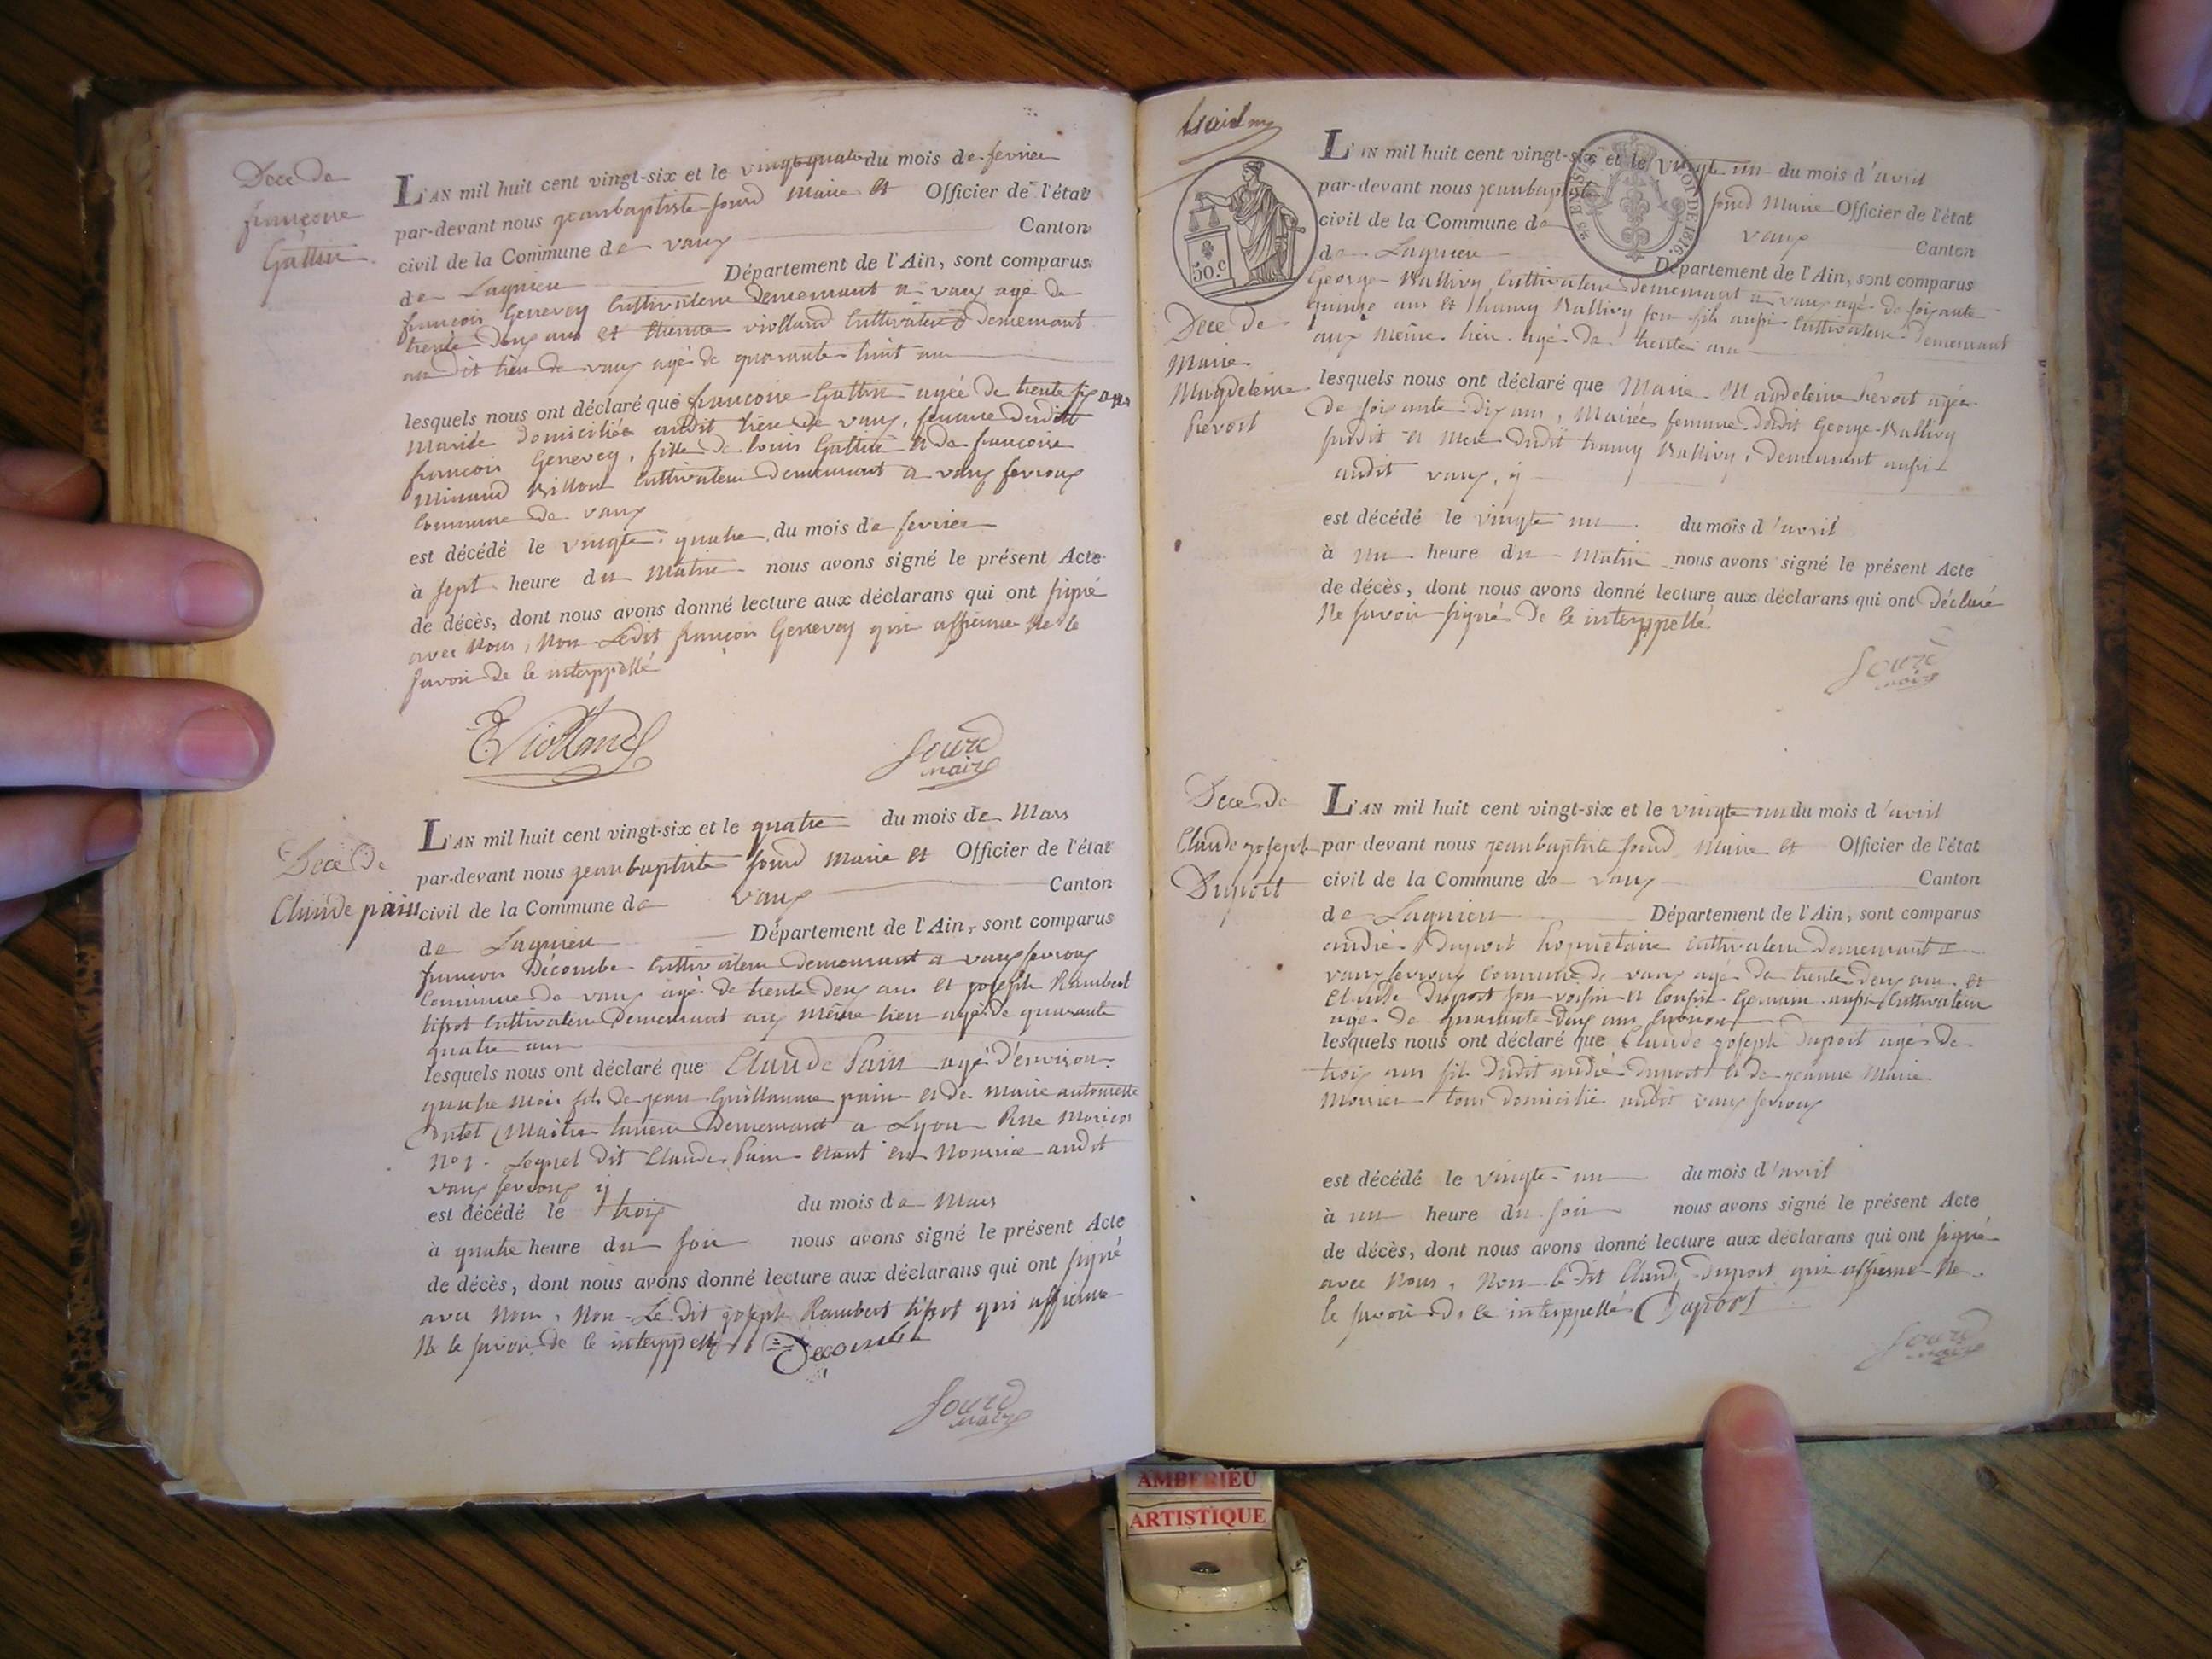 Dece de
françoise
Gattin
L'AN mil huit cent vingt-six et le vingt quatre du mois de fevrier
par-devant nous jeanbaptiste sourd Maire et Officier de l'état
civil de la Commune de vaux Canton
de Lagnieu Département de l'Ain, sont comparus
françois Genevey Cultivateur demeurant a vaux agé de
trente deux ans et Etienne violland Cultivateur demeurant
au dit lieu de vaux agé de quarante huit ans
lesquels nous ont déclaré que françoise Gattin agée de trente six ans
Mariée domiciliée audit lieu de vaux, femme dudit
françois Genevey, fille de louis Gattin et de francoise
Billon Cultivateur demeurant a vaux fevroux
Commune de vaux
est décédé le vingte quatre du mois de fevrier
à sept heure du Matin nous avons signé le présent Acte
de décès, dont nous avons donné lecture aux déclarans qui ont signé
avec Nous, Non Ledit françois Genevey qui affirme Ne le
savoir de ce interppellé
EViolland
Sourd
maire
Dece de
Claude pain
L'AN mil huit cent vingt-six et le quatre du mois de Mars
par-devant nous jeanbaptiste sourd Maire et Officier de l'état
civil de la Commune de vaux Canton
de Lagnieu Département de l'Ain, sont comparus
françois Décombe Cultivateur demeurant a vaux fevroux
Commune de vaux agé de trente deux ans et joseph Rambert
tissot Cultivateur Demeurant aux même lieu agé de quarante
quatre ans
lesquels nous ont déclaré que Claude Pain agé d'environ
quatre Mois fils de jean Guillaume pain et de Marie antoinette
Maitre Demeurant a Lyon Rue
N° 1. Lequel dit Claude Pain etant en Nourrice audit
vaux fevroux y
est décédé le trois du mois de Mars
à quatre heure du soir nous avons signé le présent Acte
de décès, dont nous avons donné lecture aux déclarans qui ont signé
avec Nous, Non Le dit joseph Rambert tissot qui affirme
Ne le savoir de ce interppellé Decombe
Sourd
maire
50.c
ROI DE 1816
Dece de
Marie
Magdeleine
Prevost
L'AN mil huit cent vingt-six et le vingte un du mois d'avril
par-devant nous jeanbaptiste sourd Maire Officier de l'état
civil de la Commune de vaux Canton
de Lagnieu Département de l'Ain, sont comparus
George Ballivy Cultivateur demeurant a vaux agé de soixante
quinze ans et thamy Ballivy son fils aussi Cultivateur demeurant
aux même lieu agé de trente ans
lesquels nous ont déclaré que Marie Magdeleine Prevost agée
de soixante dix ans, Mairée femme dudit George Ballivy
susdit et Mere dudit thamy Ballivy, demeurant aussi
audit vaux, y
est décédé le vingte un du mois d'avril
à un heure du Matin nous avons signé le présent Acte
de décès, dont nous avons donné lecture aux déclarans qui ont Déclaré
Ne savoir signé de ce interppellé
Sourd
maire
Dece de
Claude joseph
Duport
L'AN mil huit cent vingt-six et le vingte un du mois d'avril
par devant nous jeanbaptiste sourd Maire et Officier de l'état
civil de la Commune de vaux Canton
de Lagnieu Département de l'Ain, sont comparus
andré Duport Propriétaire Cultivateur demeurant a
vaux fevroux Commune de vaux agé de trente deux ans et
Claude Duport son voisin et Cousin Germain aussi Cultivateur
agé de quarante deux ans environ
lesquels nous ont déclaré que Claude joseph Duport agés de
trois ans fils dudit andré Duport et de jeanne Marie
Monier tous domicilié audit vaux fevroux
est décédé le vingte un du mois d'avril
à un heure du soir nous avons signé le présent Acte
de décès, dont nous avons donné lecture aux déclarans qui ont signé
avec Nous, Non le dit Claude Duport qui affirme Ne
le savoir de ce interppellé Duport
Sourd
maire
AMBERIEU
ARTISTIQUE